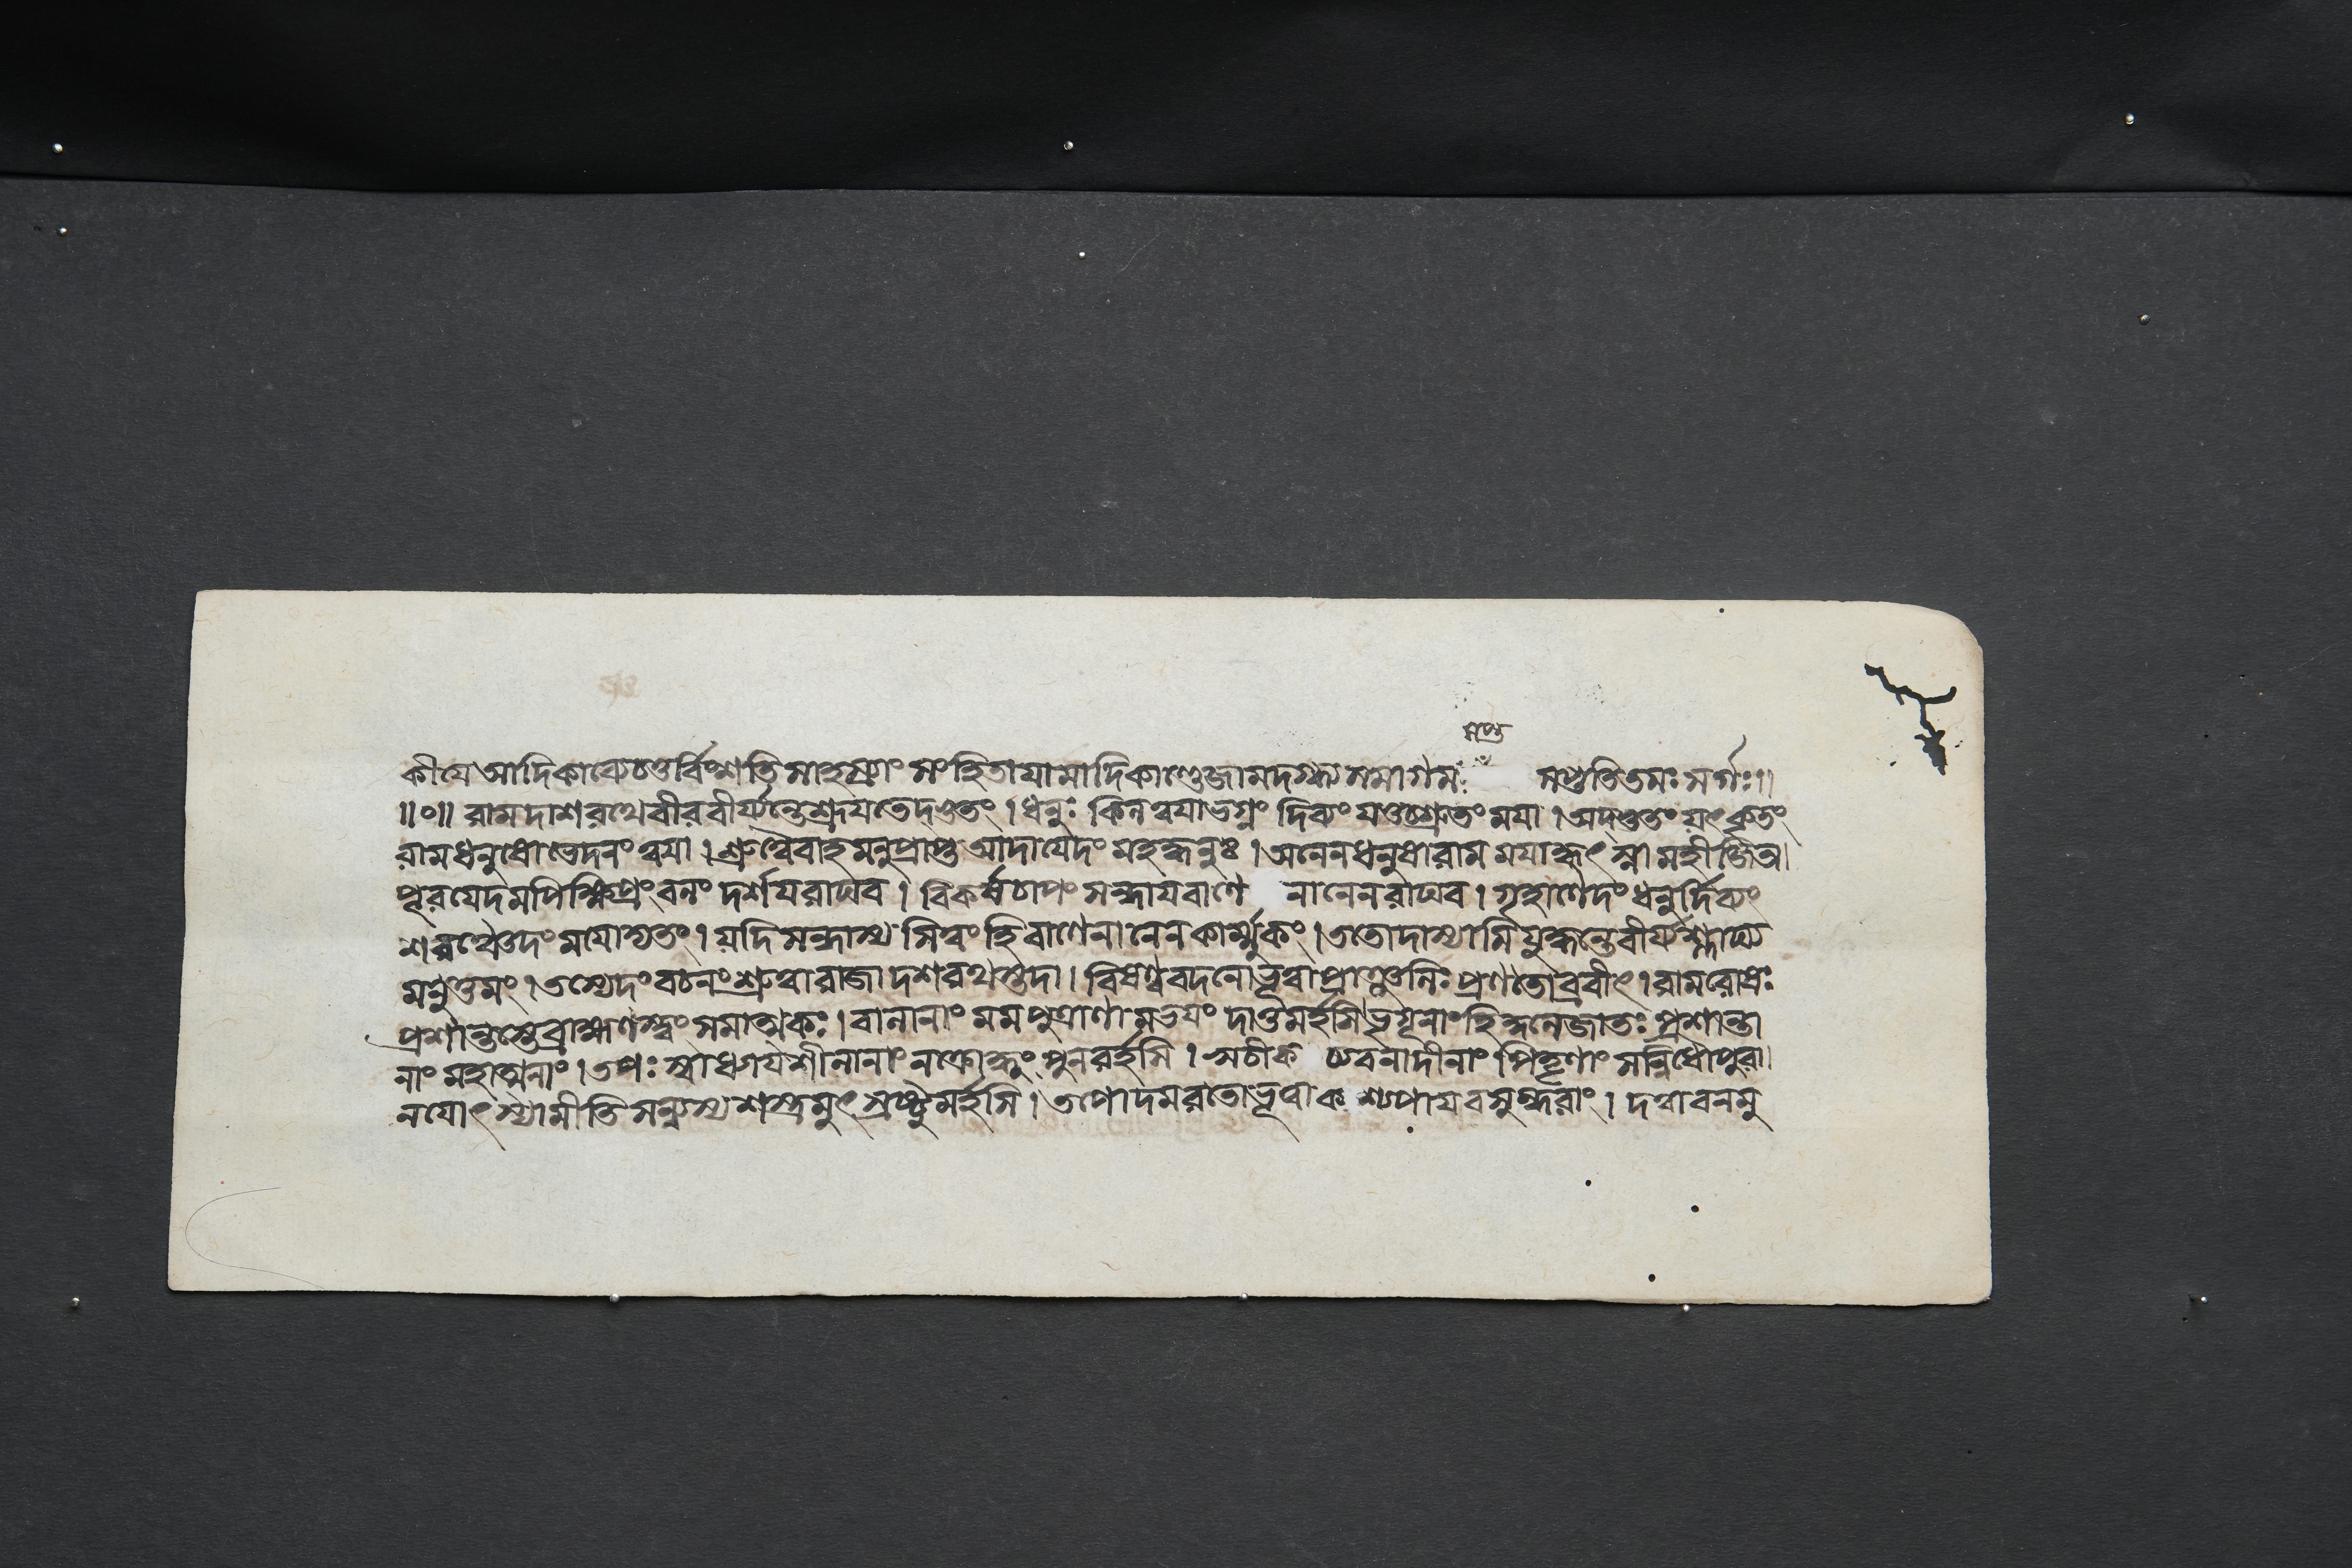 সপ্ত
কীযে আদিকাব্যে চতুর্বিংশতি সাহস্র্যাং সংহিতাযামাদিকাণ্ডে জামদগ্ন্য সমাগমঃ সপ্ততিতমঃ সর্গঃ॥
॥০॥ রাম দাশরথে বীর বীর্য্যন্তে শ্রূযতেদ্ভুতং । ধনুঃ কিন্ন ত্বযা ভগ্নং দিব্যং যত্তচ্ছ্রুতং মযা । অদ্ভুতং যৎ কৃতং
রাম ধনুষো ভেদনং ত্বযা । শ্রুত্বৈবাহমনুপ্রাপ্ত আদাযেদং মহদ্ধনুঃ । অনেন ধনুষা রাম মযা কৃৎস্না মহী জিতা।
পূরযেদমপি ক্ষিপ্রং বলং দর্শয রাঘব । বিকর্ষ চাপং সন্ধায বাণে নানেন রাঘব । গৃহাণেদং ধনুর্দিব্যং
শরঞ্চেদং মযোদ্যতং । যদি সন্ধাস্য সি ত্বং হি বাণেনানেন কার্ম্মুকং । ততো দাস্যামি যুদ্ধন্তে বীর্য্যশ্লাঘ্য
মনুত্তমং । তস্যেদং বচনং শ্রুত্বা রাজা দশরথস্তদা । বিষণ্ণবদনো ভূত্বা প্রাঞ্জলিঃ প্রণতোব্রবীৎ । রাম রোষঃ
প্রশান্তস্তে ব্রাহ্মণস্ত্বং সমাত্মকঃ । বালানাং মম পুত্রাণামভযং দাতুমর্হসি । ভৃগূনাং হি কুলে জাতঃ প্রশান্তা
নাং মহাত্মনাং । তপঃ স্বাধ্যাযশীলানাং ন ক্রোদ্ধুং পুনরর্হসি । অচীক চ্যবনাদীনাং পিতৄণাং সন্নিধৌ পুরা।
ন যোৎস্যামীতি সন্ন্যস্য শস্ত্রমুৎস্রষ্টুমর্হসি । তপোদমরতো ভূত্বা কশ্যপায বসুন্ধরাং । দত্বা বনমু